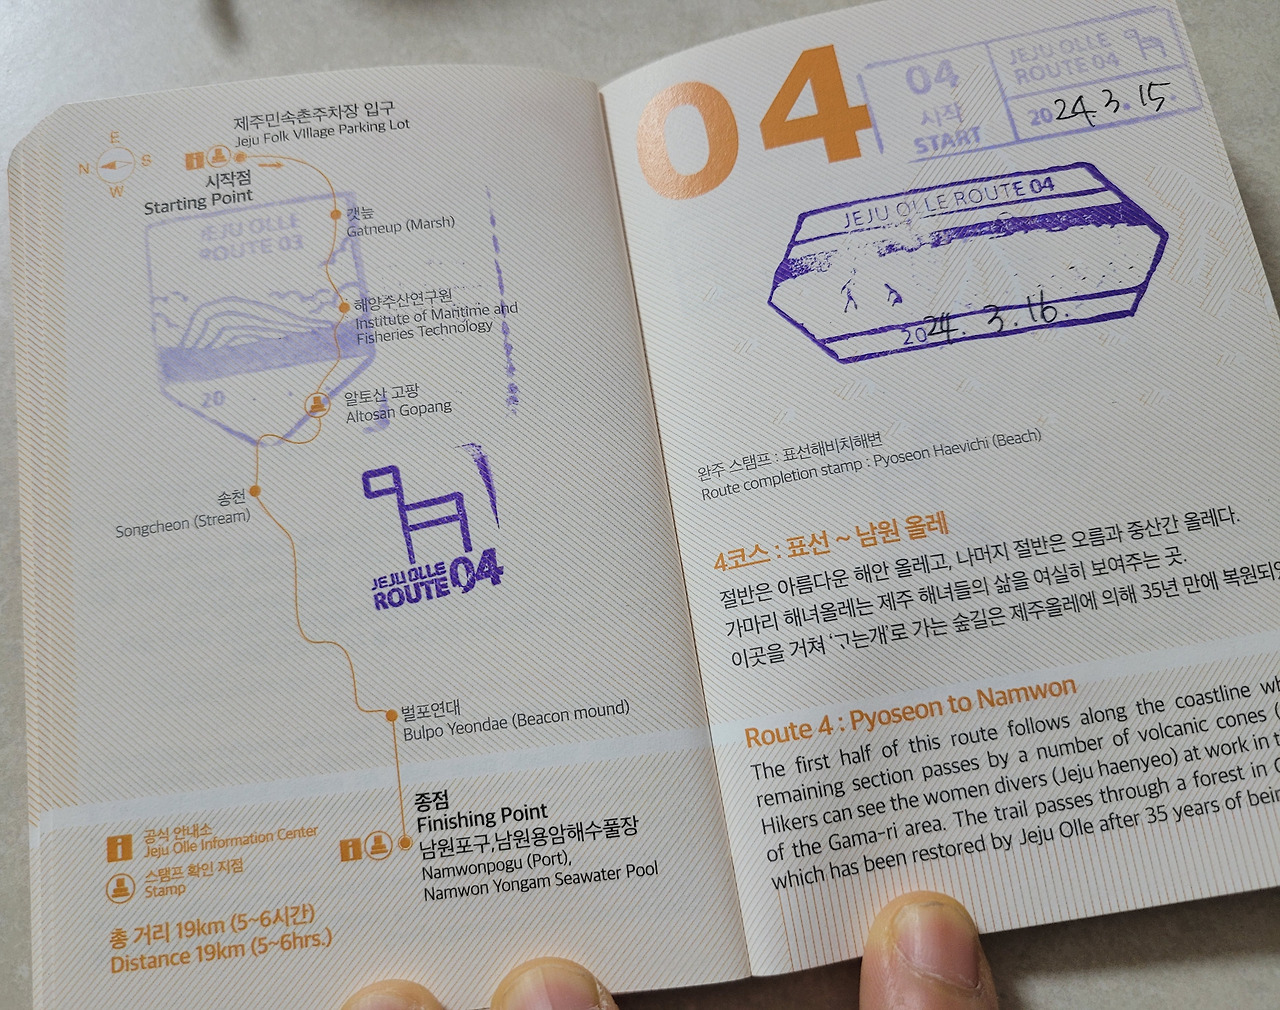 제주민속촌주차장 입구
Jeju Folk Village Parking Lot
E
N
S
W
시작점
Starting Point
JEJU OLLE
ROUTE 03
20
갯늪
Gatneup (Marsh)
해양수산연구원
Institute of Maritime and
Fisheries Technology
알토산 고팡
Altosan Gopang
송천
Songcheon (Stream)
JEJU OLLE
ROUTE 04
벌포연대
Bulpo Yeondae (Beacon mound)
종점
Finishing Point
남원포구,남원용암해수풀장
Namwonpogu (Port),
Namwon Yongam Seawater Pool
공식 안내소
Jeju Olle Information Center
스탬프 확인 지점
Stamp
총 거리 19km (5~6시간)
Distance 19km (5~6hrs.)
04
04
시작
START
JEJU OLLE
ROUTE 04
2024.3.15.
JEJU OLLE ROUTE 04
2024. 3.16.
완주 스탬프 : 표선해비치해변
Route completion stamp : Pyoseon Haevichi (Beach)
4코스 : 표선 ~ 남원 올레
절반은 아름다운 해안 올레고, 나머지 절반은 오름과 중산간 올레다.
가마리 해녀올레는 제주 해녀들의 삶을 여실히 보여주는 곳.
이곳을 거쳐 ‘ᄀᆞ는개’로 가는 숲길은 제주올레에 의해 35년 만에 복원되었
Route 4 : Pyoseon to Namwon
The first half of this route follows along the coastline
remaining section passes by a number of volcanic cones (
Hikers can see the women divers (Jeju haenyeo) at work in
of the Gama-ri area. The trail passes through a forest in
which has been restored by Jeju Olle after 35 years of